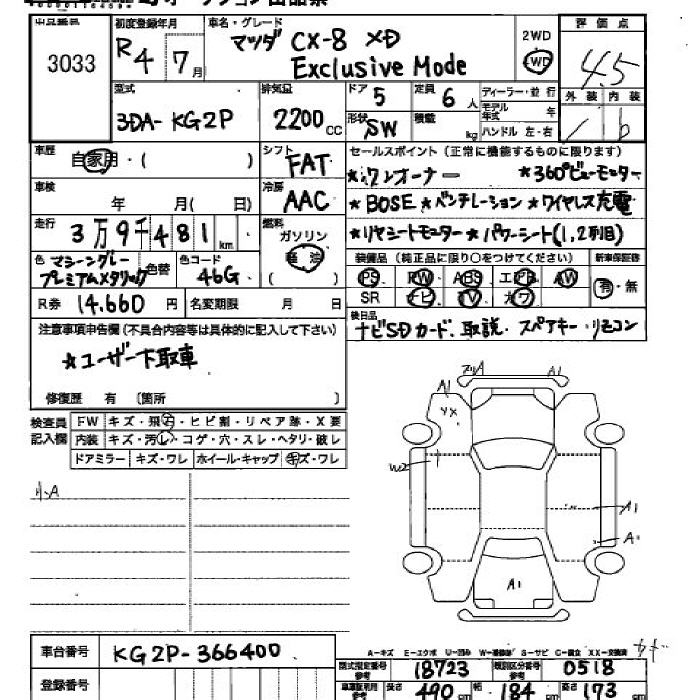 出品番号 3033
初度登録年月 R4 7月
車名・グレード マツダ CX-8 XD
Exclusive Mode
2WD
4WD
評価点 4.5
外装 内装 b
型式 3DA-KG2P
排気量 2200cc
ドア 5
形状 SW
定員 6人
積載 kg
ディーラー・並行
モデル年式 年
ハンドル 左・右
車歴 自家用・( )
シフト FAT
車検 年 月( 日)
冷房 AAC
走行 3万9千481km
燃料 ガソリン
軽油
( )
セールスポイント (正常に機能するものに限ります)
★ワンオーナー ★360°ビューモニター
★BOSE ★ベンチレーション ★ワイヤレス充電
★リヤシートモニター ★パワーシート(1,2列目)
色 マシーングレープレミアムメタリック
色替
色コード 46G
装備品 (純正品に限り○をつけてください)
PS PW ABS エアB AW
SR ナビ TV カワ
新車保証書
有・無
R券 14.660円
名変期限 月 日
後日品
ナビSDカード、取説・スペアキー・リモコン
注意事項申告欄 (不具合内容等は具体的に記入して下さい)
★ユーザー下取車
修復歴 有 〔箇所 〕
検査員記入欄
FW キズ・飛石・ヒビ割・リペア跡・X要
内装 キズ・汚れ・コゲ・穴・スレ・ヘタリ・破レ
ドアミラー キズ・ワレ ホイール・キャップ キズ・ワレ
小A
A1
A1
YX
W2
A1
A1
A1
車台番号 KG2P-366400
登録番号
A-キズ E-エクボ U-凹み W-補修跡 S-サビ C-腐食 XX-交換済
型式指定番号 参考 18723
類別区分番号 参考 0518
長さ 490cm
幅 184cm
高さ 173cm